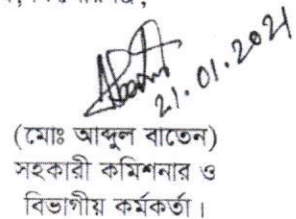 21.01.2021
(মোঃ আব্দুল বাতেন)
সহকারী কমিশনার ও
বিভাগীয় কর্মকর্তা।